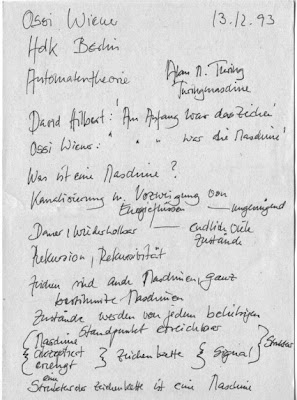 Ossi Wiener 13.12.93
HdK Berlin
Automatentheorie Alan M. Turing
Turingmaschine
David Hilbert: 'Am Anfang war das Zeichen'
Ossi Wiener: " " war die Maschine'
Was ist eine Maschine?
Kanalisierung u. Verzweigung von
Energieflüssen — ungenügend
Dauer, Wiederholbar — endlich viele
Zustände
Rekursion, Rekursivität
Zeichen sind auch Maschinen, ganz
bestimmte Maschinen
Zustände werden von jedem beliebigen
Standpunkt erreichbar
{ Maschine } Struktur
{ akzeptiert } Zeichenkette { Signal }
erzeugt
eine
Struktur der Zeichenkette ist eine Maschine